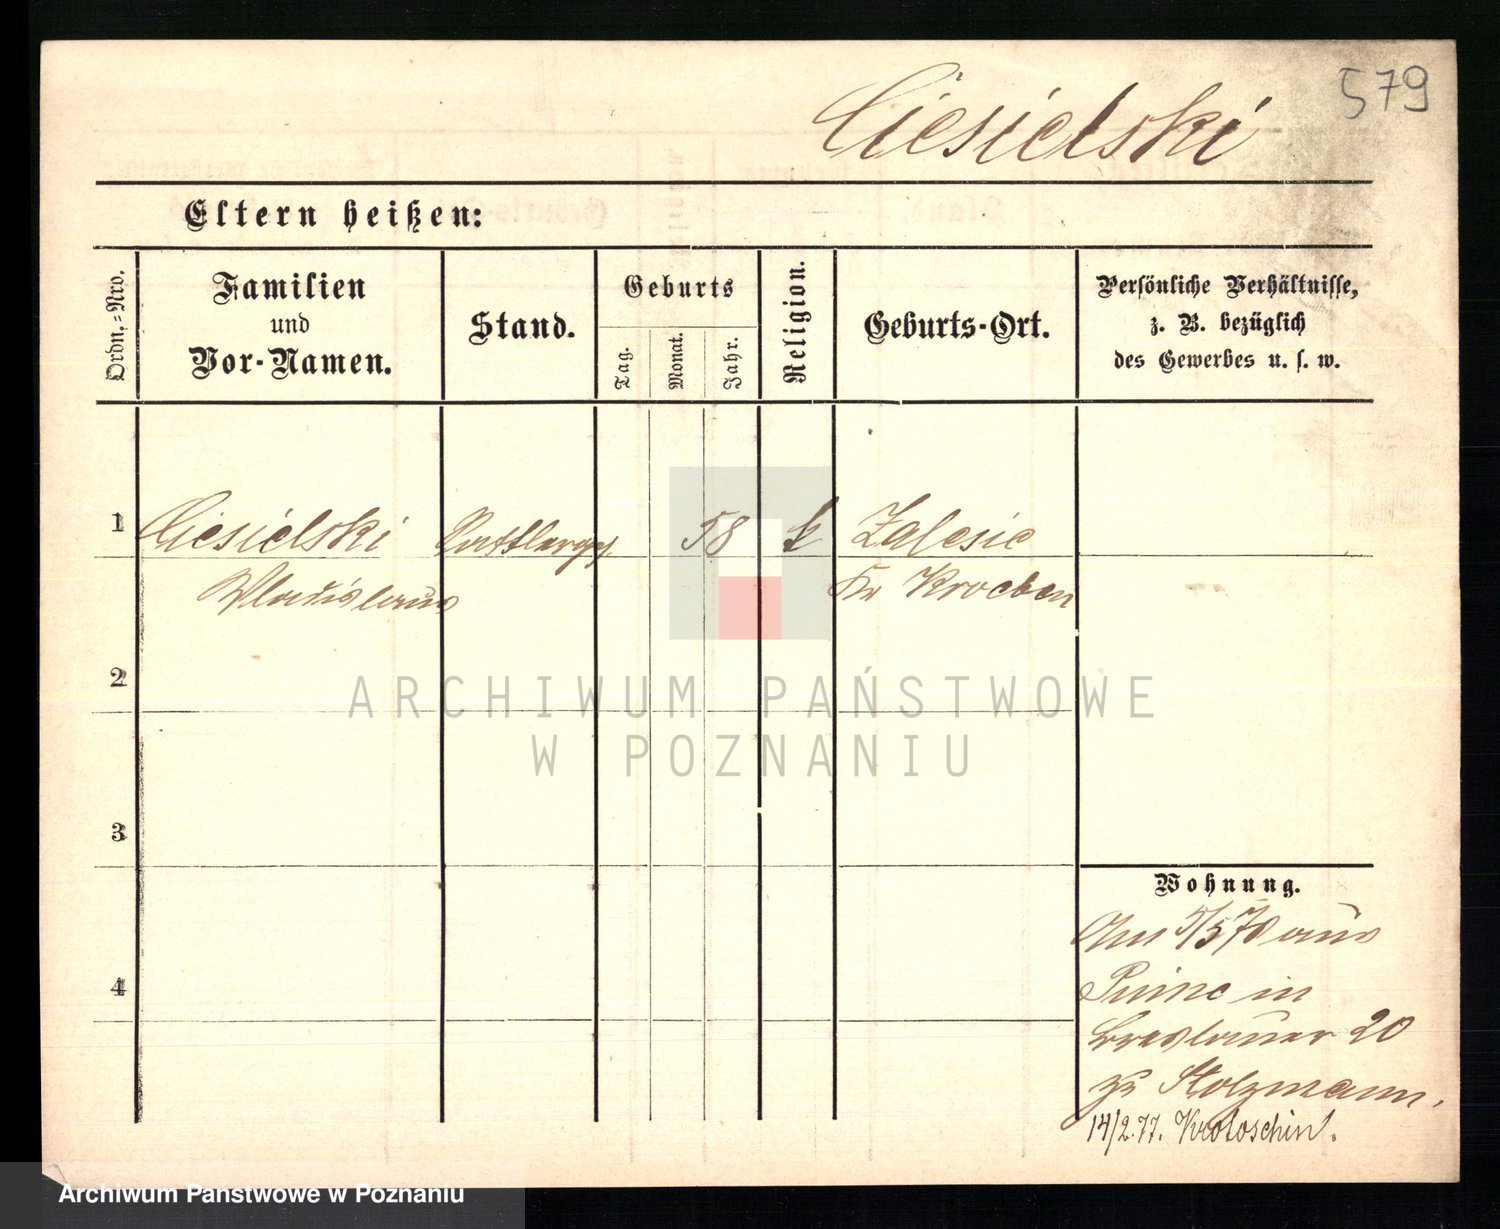 579
Ciesielski
Eltern heißen:
Ordn.-Nro.
Familien
und
Vor-Namen.
Stand.
Geburts
Tag.
Monat.
Jahr.
Religion.
Geburts-Ort.
Persönliche Verhältnisse,
z. B. bezüglich
des Gewerbes u. s. w.
1
Ciesielski
58
k
Zalesie
Wladislaus
Kr Kroeben
2
ARCHIWUM PAŃSTWOWE
W POZNANIU
3
Wohnung.
aus
4
in
Breslauer 20
zu Stolzmann.
14/2.77. Krotoschin.
Archiwum Państwowe w Poznaniu